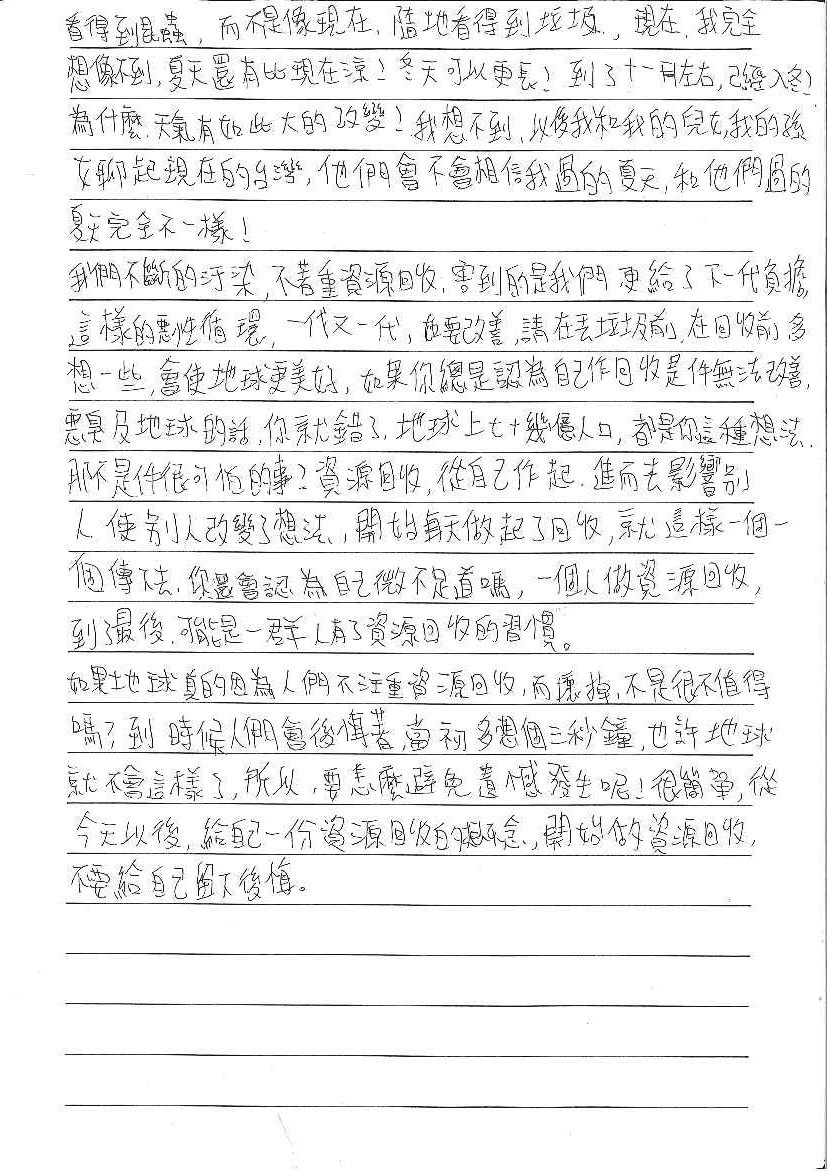 看得到昆蟲，而不是像現在，隨地看得到垃圾，現在，我完全
想像不到，夏天還有比現在涼！冬天可以更長！到了十一月左右，已經入冬！
為什麼，天氣有如此大的改變！我想不到，以後我和我的兒女，我的孫
女聊起現在的台灣，他們會不會相信我過的夏天，和他們過的
夏天完全不一樣！
我們不斷的汙染，不著重資源回收，害到的是我們，更給了下一代負擔，
這樣的惡性循環，一代又一代，要改善，請在丟垃圾前，在回收前多
想一些，會使地球更美好，如果你總是認為自己作回收是件無法改善，
惡臭及地球的話，你就錯了，地球上七十幾億人口，都是你這種想法，
那不是件很可怕的事？資源回收，從自己作起，進而去影響別
人使別人改變了想法，開始每天做起了回收，就這樣一個一
個傳下去，你還會認為自己微不足道嗎，一個人做資源回收，
到了最後，可能是一群人有了資源回收的習慣。
如果地球真的因為人們不注重資源回收，而壞掉，不是很不值得
嗎？到時候人們會後悔著，當初多想個三秒鐘，也許地球
就不會這樣了，所以，要怎麼避免遺憾發生呢！很簡單，從
今天以後，給自己一份資源回收的概念，開始做資源回收，
不要給自己留下後悔。